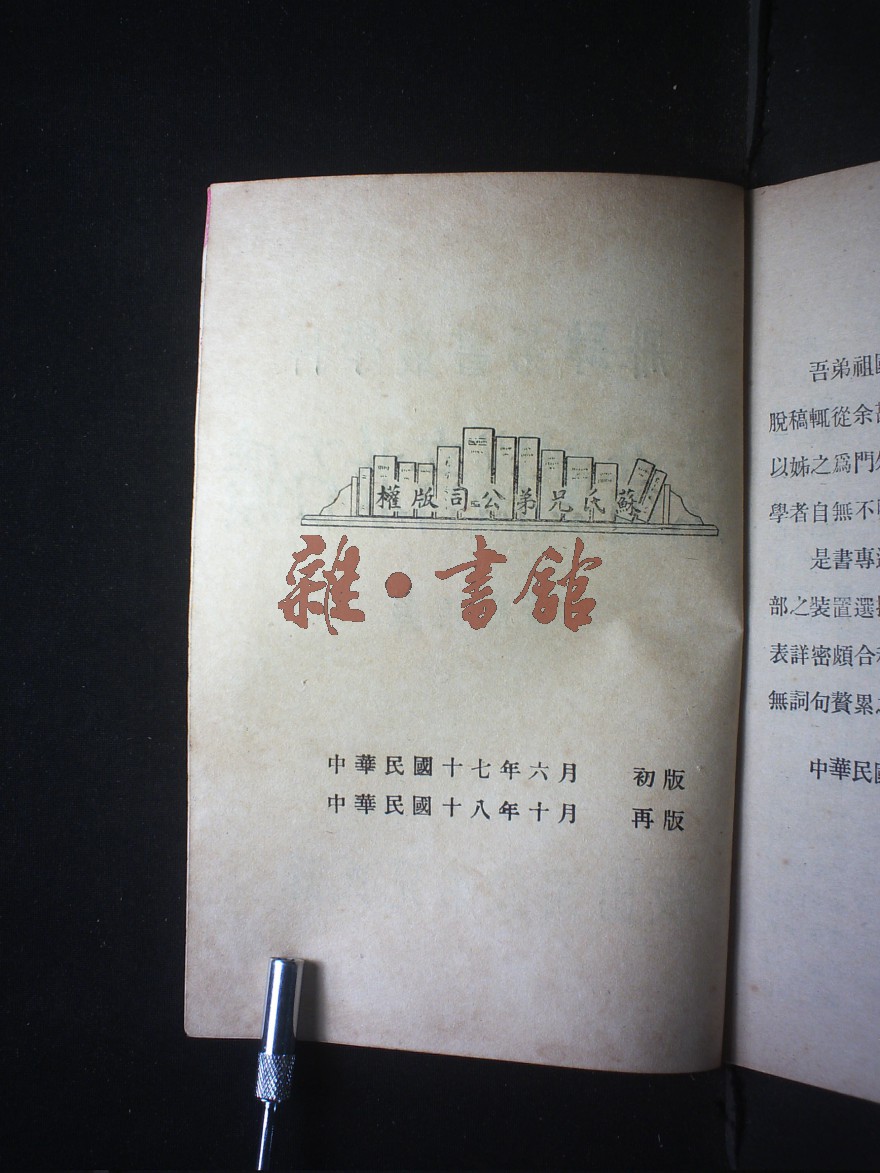 蘇氏兄弟公司版權
雜•書館
中華民國十七年六月 初版
中華民國十八年十月 再版
吾弟祖
脫稿輒從余
以姊之爲門
學者自無不
是書專
部之裝置選
表詳密頗合
無詞句贅累
中華民